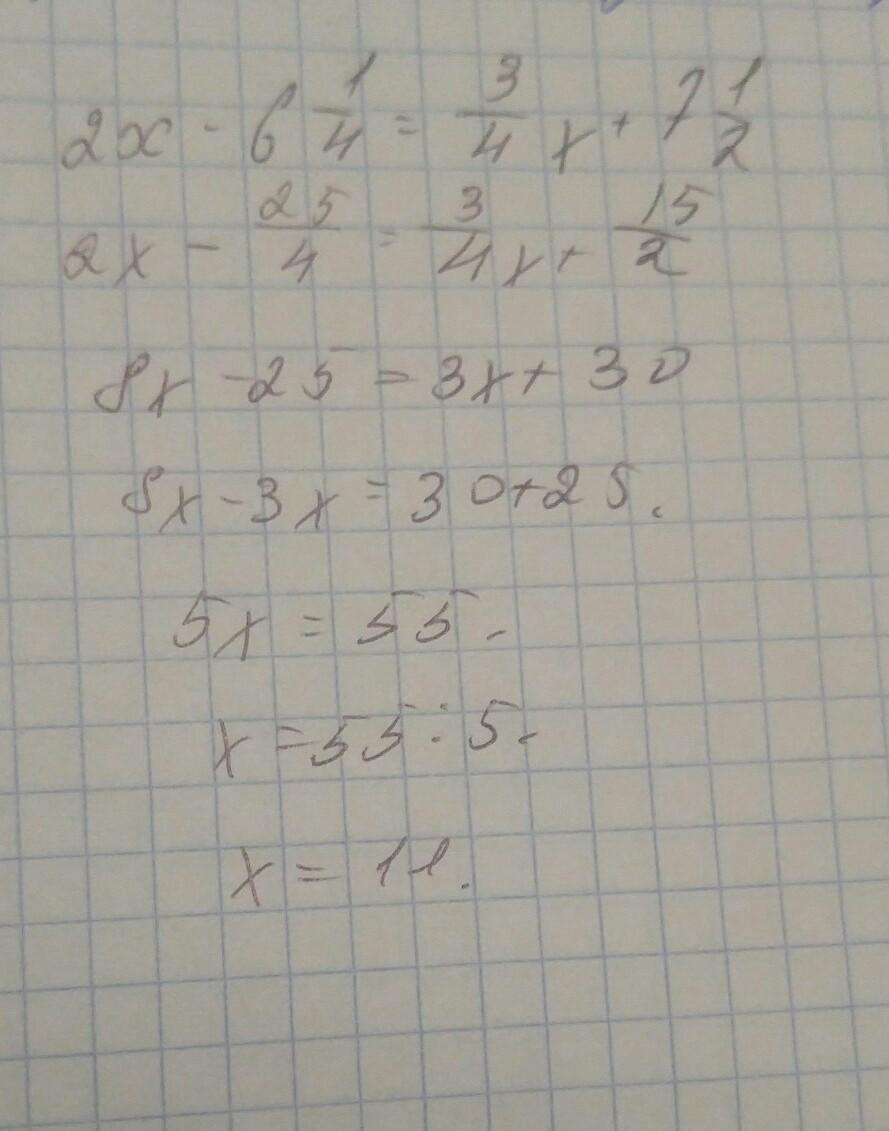 2x - 6 1/4 = 3/4 x + 7 1/2
2x - 25/4 = 3/4 x + 15/2
8x - 25 = 3x + 30
8x - 3x = 30 + 25.
5x = 55.
x = 55 : 5.
x = 11.